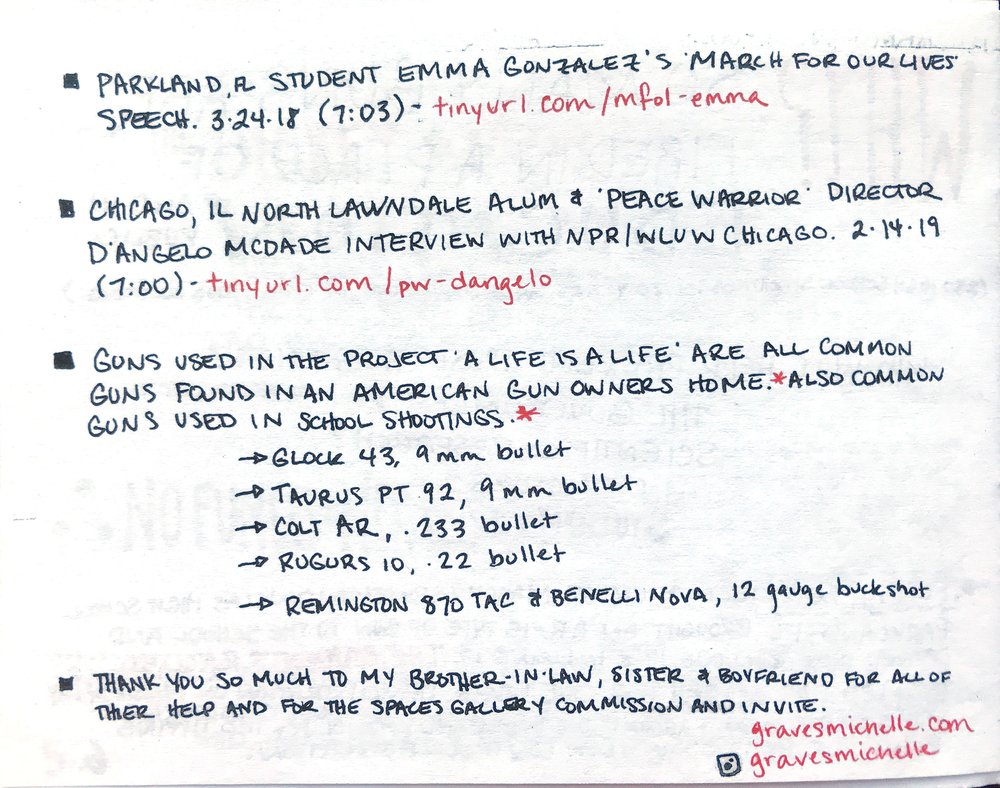 ■ PARKLAND, FL STUDENT EMMA GONZALEZ'S 'MARCH FOR OUR LIVES'
SPEECH. 3·24·18 (7:03) - tinyurl.com/mfol-emma
■ CHICAGO, IL NORTH LAWNDALE ALUM & 'PEACE WARRIOR' DIRECTOR
D'ANGELO MCDADE INTERVIEW WITH NPR/WLUW CHICAGO. 2·14·19
(7:00) - tinyurl.com/pw-dangelo
■ GUNS USED IN THE PROJECT 'A LIFE IS A LIFE' ARE ALL COMMON
GUNS FOUND IN AN AMERICAN GUN OWNERS HOME.*ALSO COMMON
GUNS USED IN SCHOOL SHOOTINGS.*
→ GLOCK 43, 9mm bullet
→ TAURUS PT 92, 9mm bullet
→ COLT AR, .233 bullet
→ RUGURS 10, .22 bullet
→ REMINGTON 870 TAC & BENELLI NOVA, 12 gauge buckshot
■ THANK YOU SO MUCH TO MY BROTHER-IN-LAW, SISTER & BOYFRIEND FOR ALL OF
THIER HELP AND FOR THE SPACES GALLERY COMMISSION AND INVITE.
gravesmichelle.com
gravesmichelle